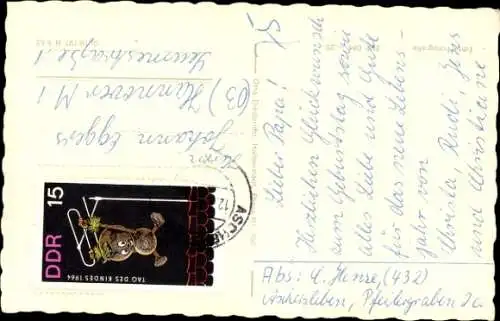 Lieber Papa!
Herzlichen Glückwunsch
zum Geburtstag sowie
alles Liebe und Gute
für das neue Lebens-
jahr von
Christa, Rudi, Jens
und Christiane
Abs: C. Henze, (432)
Aschersleben, Pfeilergraben 2a
Herrn
Johann Eggers
(03) Hannover M 1
15
DDR
TAG DES KINDES 1964
ASCHE
12